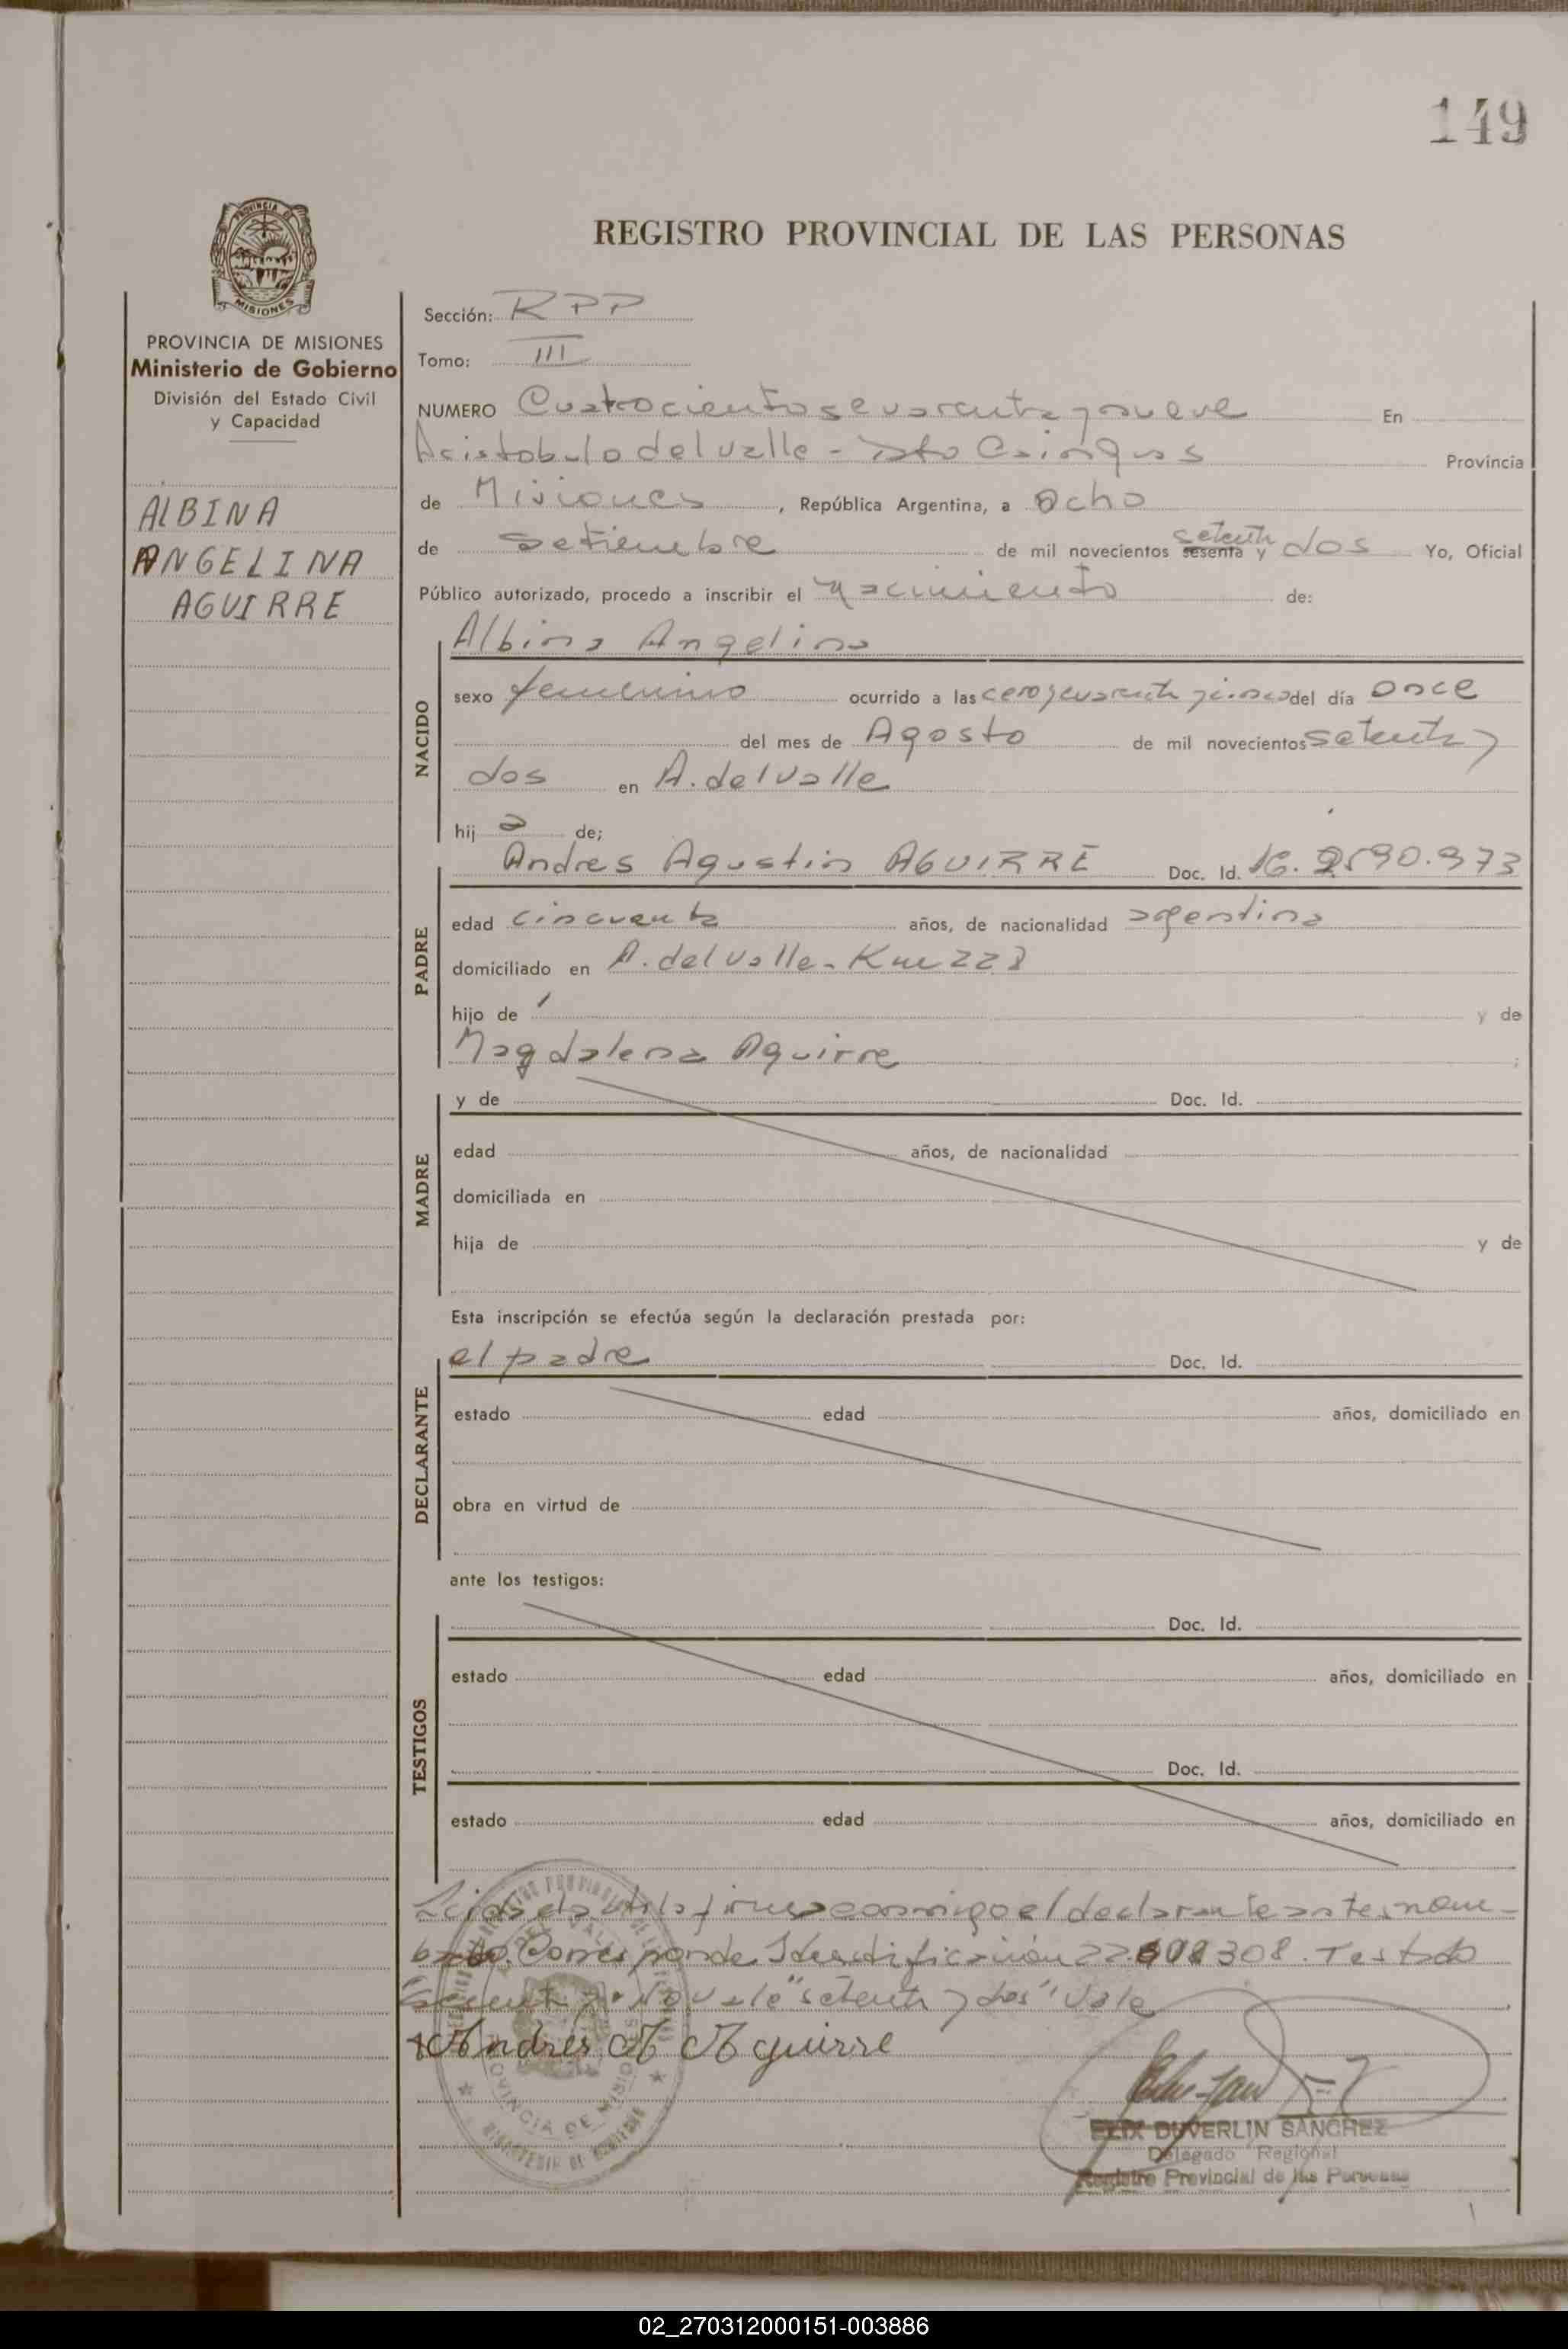 149
PROVINCIA DE
MISIONES
REGISTRO PROVINCIAL DE LAS PERSONAS
PROVINCIA DE MISIONES
Ministerio de Gobierno
División del Estado Civil
y Capacidad
ALBINA
ANGELINA
AGUIRRE
Sección: RPP
Tomo: III
NUMERO Cuatrocientos cuarenta y nueve En
Aristobulo del Valle - Dto Cainguas Provincia
de Misiones, República Argentina, a Ocho
de Setiembre de mil novecientos sesenta y setenta dos Yo, Oficial
Público autorizado, procedo a inscribir el nacimiento de:
NACIDO
Albina Angelina
sexo femenino ocurrido a las cero y cuarenta y cinco del día once
del mes de Agosto de mil novecientos setenta y
dos en A. del Valle
hij a de;
PADRE
Andres Agustin AGUIRRE Doc. Id.
edad cincuenta años, de nacionalidad argentina
domiciliado en A. del Valle - Km 228
hijo de y de
Magdalena Aguirre ;
MADRE
y de Doc. Id.
edad años, de nacionalidad
domiciliada en
hija de y de
Esta inscripción se efectúa según la declaración prestada por:
DECLARANTE
el padre Doc. Id.
estado edad años, domiciliado en
obra en virtud de
ante los testigos:
TESTIGOS
Doc. Id.
estado edad años, domiciliado en
Doc. Id.
estado edad años, domiciliado en
Leida el acta la firma conmigo el declarante antes nom-
brado. Corresponde Identificación 308. Testado
"sesenta" No vale "setenta y dos" Vale
Andrés A Aguirre
DUVERLIN SANCHEZ
Delegado Regional
Registro Provincial de las Personas
02_270312000151-003886